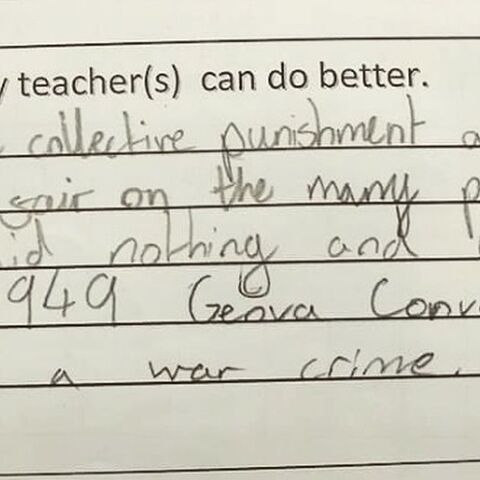 y teacher(s) can do better.
collective punishment a
fair on the many p
id nothing and
949 Genva Conv
a war crime.